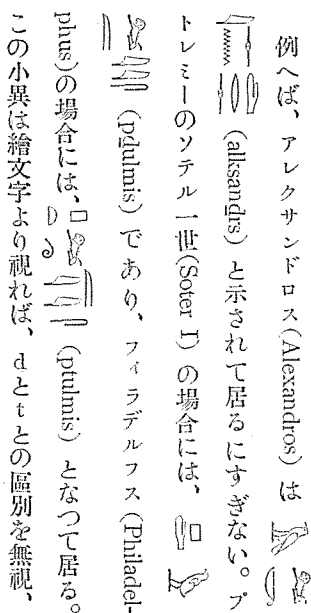 例へば、アレクサンドロス(Alexandros) は
(alksandrs) と示されて居るにすぎない。プ
トレミーのソテル一世(Soter I) の場合には、
(pdulmis) であり、フィラデルフス (Philadel-
phus)の場合には、 (ptulmis) となつて居る。
この小異は繪文字より視れば、dとtとの區別を無視、